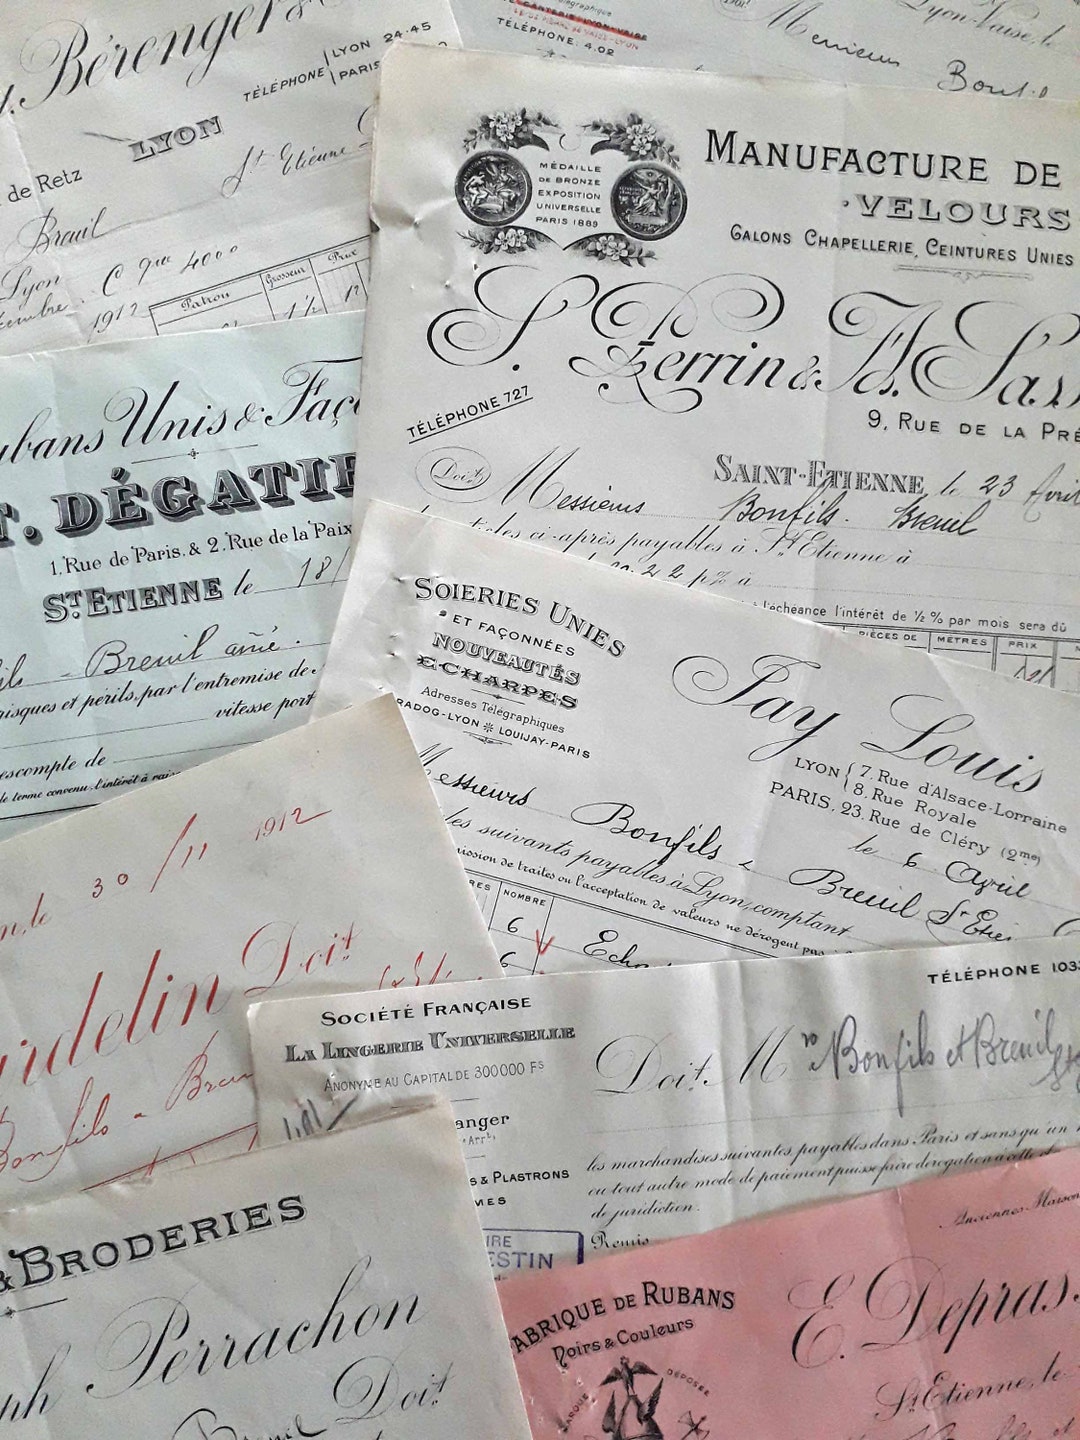 Bérenger &
LYON 24.45
TÉLÉPHONE
PARIS
LYON
St Etienne
de Retz
Breuil
Lyon
1912
Patron
Grosseur
Prix
TÉLÉPHONE. 4.02
Lyon-Vaise, le
Messieurs
MANUFACTURE DE
VELOURS
GALONS CHAPELLERIE, CEINTURES UNIES
MÉDAILLE
DE BRONZE
EXPOSITION
UNIVERSELLE
PARIS 1889
S. Perrin & Js. Sass
9, RUE DE LA PRÉ
TÉLÉPHONE 727
SAINT-ETIENNE, le 23 Avril
Doit
Messieurs Bonfils. Breuil
articles ci-après payables à St Etienne à
22 p% à
l'échéance l'intérêt de ½ % par mois sera dû
PIÈCES DE
MÈTRES
PRIX
ubans Unis & Faço
T. DÉGATIE
1, Rue de Paris, & 2, Rue de la Paix
ST ETIENNE le 18/
ls - Breuil ainé.
risques et périls, par l'entremise de
vitesse port
escompte de
le terme convenu, l'intérêt à rais
SOIERIES UNIES
ET FAÇONNÉES
NOUVEAUTÉS
ECHARPES
Adresses Télégraphiques
RADOG-LYON * LOUIJAY-PARIS
Jay Louis
LYON
7, Rue d'Alsace-Lorraine
8, Rue Royale
PARIS, 23, Rue de Cléry (2me)
le 6 Avril
Messieurs Bonfils & Breuil St Etie
les suivants payables à Lyon, comptant
ission de traites ou l'acceptation de valeurs ne dérogent pas
RES
NOMBRE
6
6
le 30/11 1912
rdelin Doit
Bonfils - Breu
TÉLÉPHONE 1033
SOCIÉTÉ FRANÇAISE
LA LINGERIE UNIVERSELLE
ANONYME AU CAPITAL DE 300000 FS
Doit, M rs Bonfils et Breuil
anger
Arrt.
S & PLASTRONS
MES
les marchandises suivantes, payables dans Paris et sans qu'un
ou tout autre mode de paiement puisse faire dérogation à cette
de juridiction.
Remis
IRE
ESTIN
& BRODERIES
ph Perrachon
Doit
Anciennes Maison
ABRIQUE DE RUBANS
Noirs & Couleurs
MARQUE DÉPOSÉE
E. Depras.
St Etienne, le